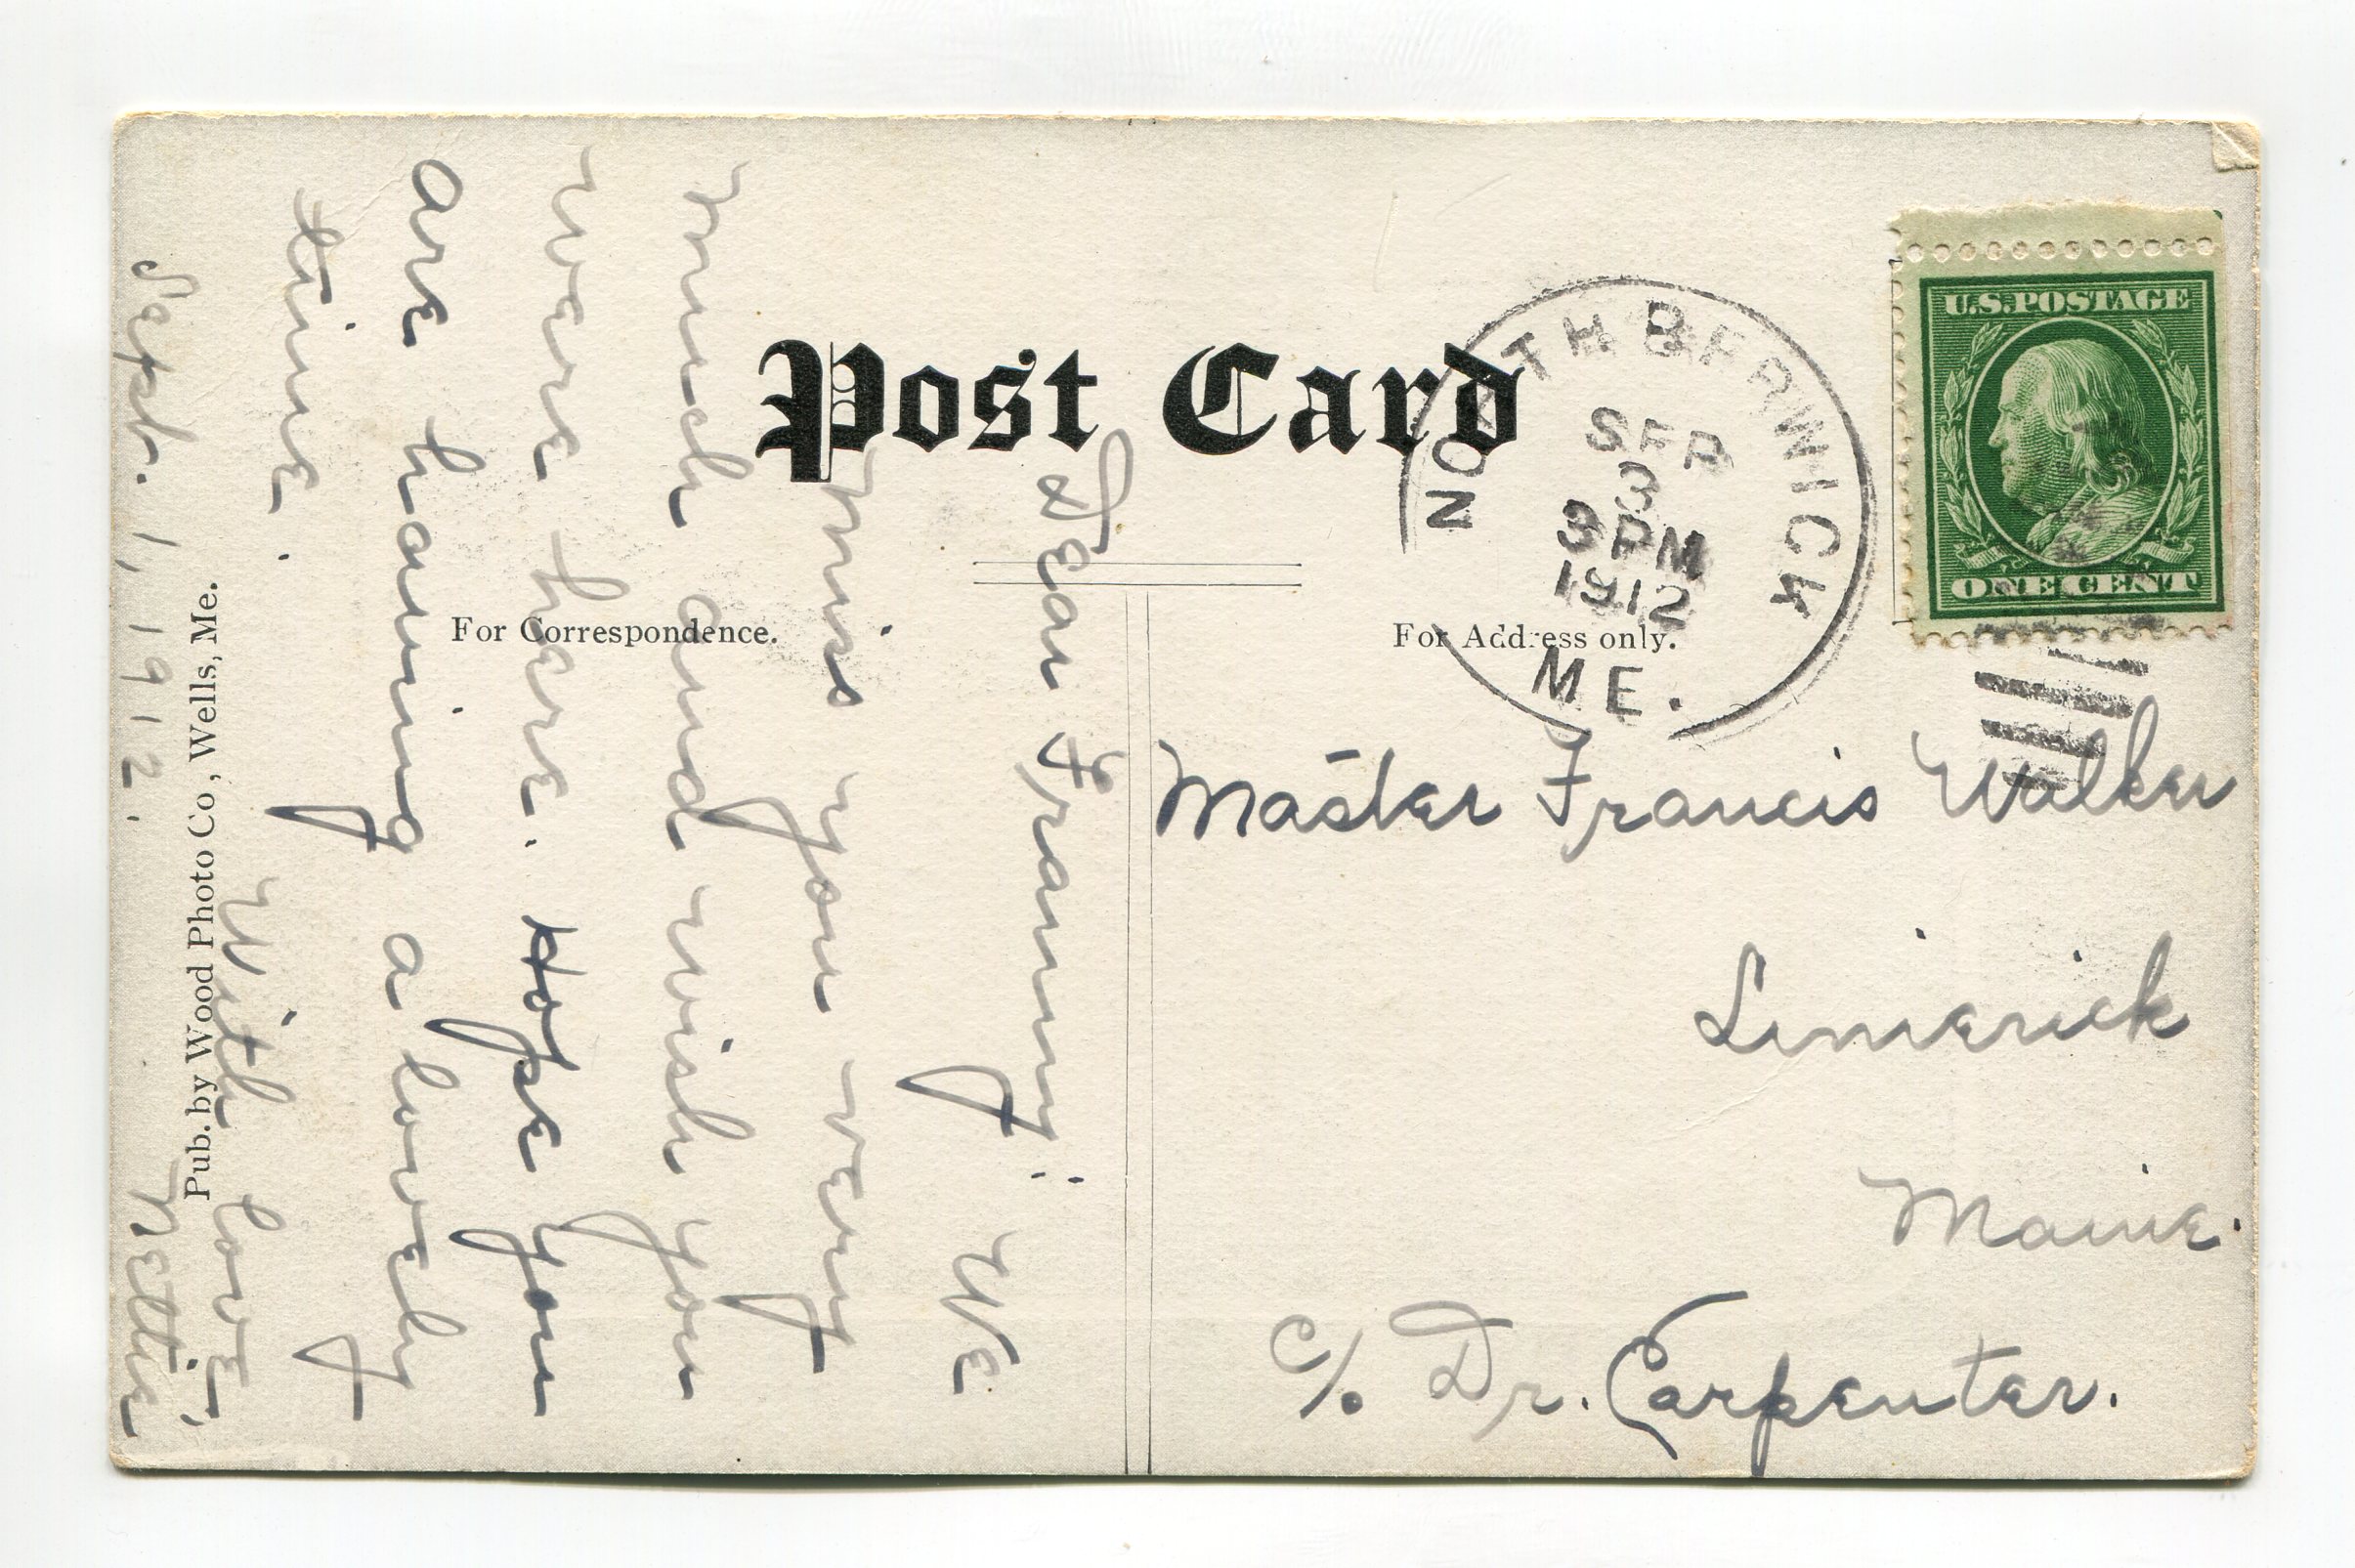 Post Card
For Correspondence.
For Address only.
Pub. by Wood Photo Co, Wells, Me.
U.S. POSTAGE
ONE CENT
NORTH BERWICK
SEP
3
3 PM
1912
ME.
Dear Franny:
We
miss you very
much and wish you
were here. Hope you
are having a lovely
time.
With love,
Sept. 1, 1912. Nettie
Master Francis Walker
Limerick
Maine.
c/o Dr. Carpenter.